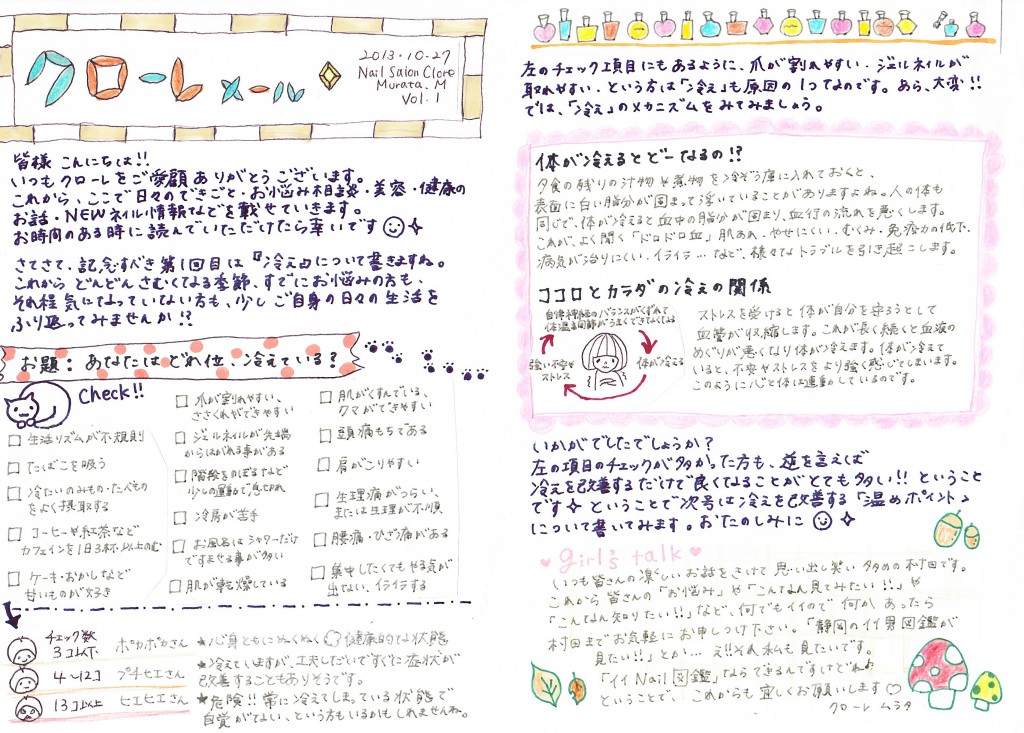 クロール メール
2013・10・27
Nail Salon Clore
Murata.M
Vol.1
皆様 こんにちは!!
いつも クローレをご愛顧 ありがとう ございます。
これから、ここで日々のできごと・お悩み相談・美容・健康の
お話・NEWネイル情報などを載せていきます。
お時間のある時に読んでいただけたら幸いです
さてさて、記念すべき第1回目は『冷え』について書きますね。
これから どんどんさむくてなる季節、すでにお悩みの方も、
それ程 気になっていない方も、少し ご自身の日々の生活を
ふり返ってみませんか!?
お題: あなたは どれ位 冷えている?
Check!!
生活リズムが不規則
たばこを吸う
冷たいのみもの・たべもの
をよく摂取する
コーヒーや紅茶など
カフェインを1日3杯以上のむ
ケーキ・おかしなど
甘いものが好き
爪が割れやすい、
ささくれができやすい
ジェルネイルが先端
からはがれる事がある
階段をのぼるなど
少しの運動で息切れ
冷房が苦手
お風呂はシャワーだけ
ですませる事が多い
肌が乾燥している
肌がくすんでいる、
クマができやすい
頭痛もちである
肩がこりやすい
生理痛がつらい、
または生理が不順
腰痛・ひざ痛がある
集中したくてもやる気が
出ない、イライラする
チェック数
3コ以下 ポカポカさん ★心身ともにぬくぬく 健康的な状態
4〜12コ プチヒエさん ★冷えていますが、工夫しだいですぐに症状が
改善することもありそうです。
13コ以上 ヒエヒエさん ★危険!! 常に冷えてしまっている状態で
自覚がてない、という方もいるかもしれませんね。
左のチェック項目にもあるように、爪が割れやすい・ジェルネイルが
取れやすい・という方は「冷え」も原因の1つなのです。あら、大変!!
では、「冷え」のメカニズムをみてみましょう。
体が冷えるとどーなるの!?
夕食の残りの汁物や煮物を冷ぞう庫に入れておくと、
表面に白い脂分が固まって浮いていることがありますよね。人の体も
同じで、体が冷えると血中の脂分が固まり、血行の流れを悪くします。
これが、よく聞く「ドロドロ血」肌あれ・やせにくい・むくみ・免疫力の低下、
病気が治りにくい・イライラ…など、様々なトラブルを引き起こします。
ココロとカラダの冷えの関係
自律神経のバランスがくずれて
体温調節がうまくできなくなる
強い不安や
ストレス
体が冷える
ストレスを受けると体が自分を守ろうとして
血管が収縮します。これが長く続くと血液の
めぐりが悪くなり体が冷えます。体が冷えて
いると、不安やストレスをより強く感じてしまいます。
このように心と体は連動しているのです。
いかがでしたでしょうか?
左の項目のチェックが多かった方も、逆を言えば
冷えを改善するだけで良くなることがとても多い!! ということ
です ということで次号は冷えを改善する「温めポイント」
について書いてみます。おたのしみに
girl's talk
いつも皆さんの楽しいお話をきけて 思い出し笑い多めの村田です。
これから皆さんの「お悩み」や「こんてん見てみたい!!」や
「こんてん知りたい!!」など、何でもイイので 何か あったら
村田までお気軽に お申しつけ下さい。「静岡のイイ男図鑑が
見たい!!」とか… え!!それ私も見たいです。
「イイNail図鑑」ならできるんですけどね♪
ということで、これからも 宜しくお願いします♡
クローレ ムラタ